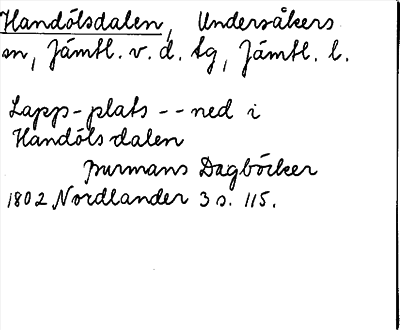 Handölsdalen, Undersåkers
sn, Jämtl. v. d. tg, Jämtl. l.
Lapp-plats -- ned i
Handöls dalen
Burmans Dagböcker
1802 Nordlander 3 s. 115.